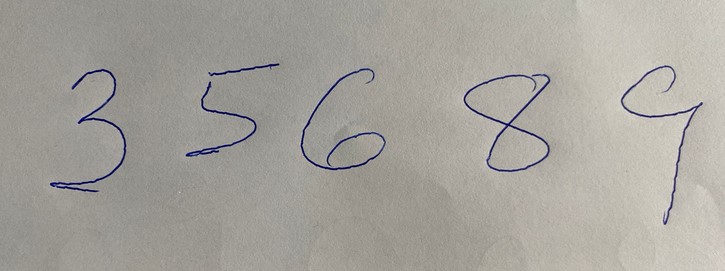 3 5 6 8 9